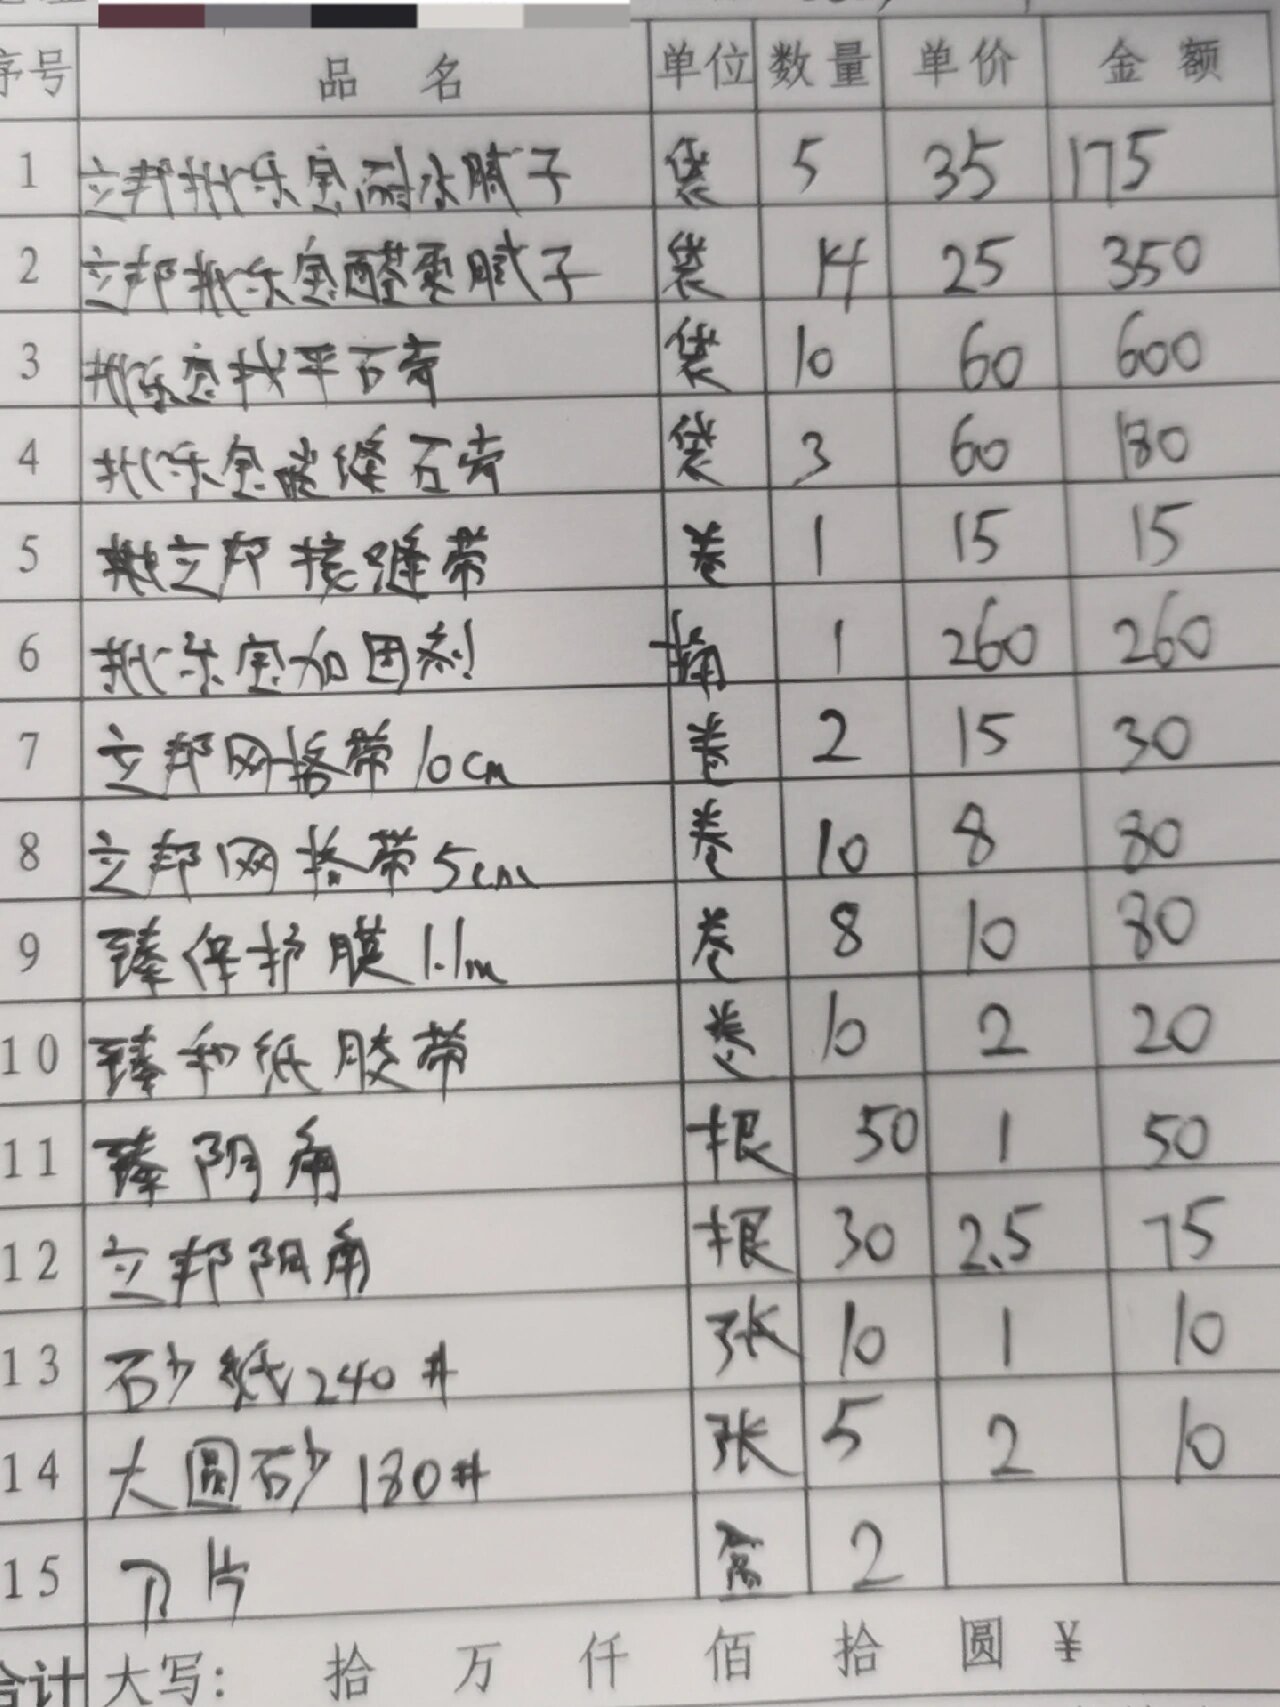 序号 品名 单位 数量 单价 金额
1 立邦批乐宝耐水腻子 袋 5 35 175
2 立邦批乐宝醛零腻子 袋 14 25 350
3 批乐宝找平石膏 袋 10 60 600
4 批乐宝嵌缝石膏 袋 3 60 180
5 立邦接缝带 卷 1 15 15
6 批乐宝加固剂 桶 1 260 260
7 立邦网格带10cm 卷 2 15 30
8 立邦网格带5cm 卷 10 8 80
9 臻保护膜1.1m 卷 8 10 80
10 臻和纸胶带 卷 10 2 20
11 臻阴角 根 50 1 50
12 立邦阴角 根 30 2.5 75
13 砂纸240# 张 10 1 10
14 大圆砂180# 张 5 2 10
15 刀片 盒 2
合计 大写: 拾 万 仟 佰 拾 圆 ¥